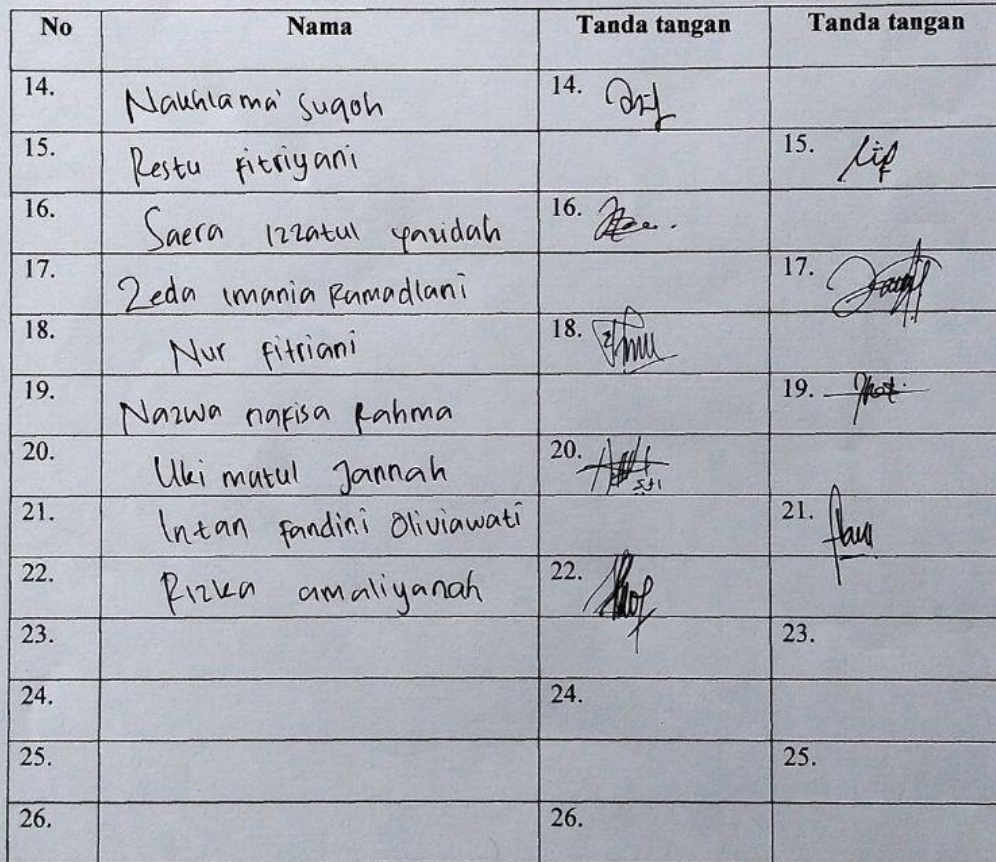 No Nama Tanda tangan Tanda tangan
14. Nakhlama' suqoh 14.
15. Restu fitriyani 15.
16. Saera izzatul faridah 16.
17. Zeda imania Ramadlani 17.
18. Nur fitriani 18.
19. Nazwa nafisa Rahma 19.
20. Uki matul Jannah 20.
21. Intan fandini Oliviawati 21.
22. Rizka amaliyanah 22.
23. 23.
24. 24.
25. 25.
26. 26.